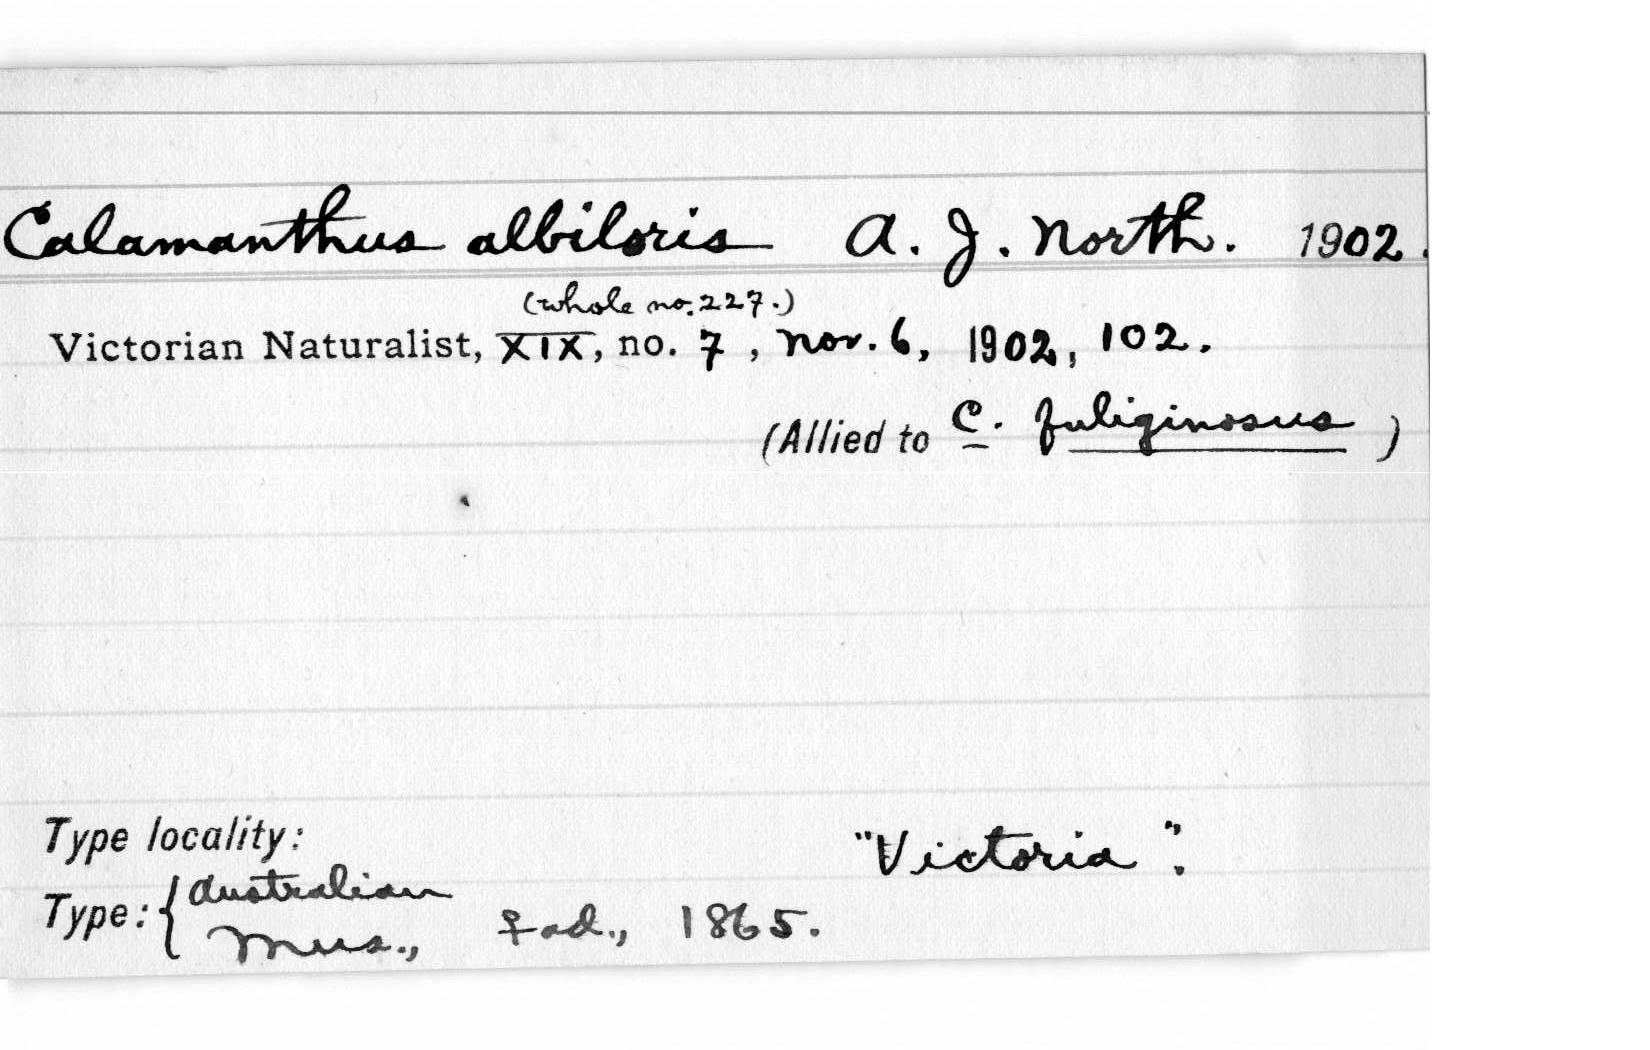 Calamanthus albiloris A. J. North. 1902.
(whole no. 227.)
Victorian Naturalist, XIX, no. 7, Nov. 6, 1902, 102.
(Allied to C. fuliginosus)
Type locality: "Victoria".
Type: { Australian
Mus., ♀ad., 1865.